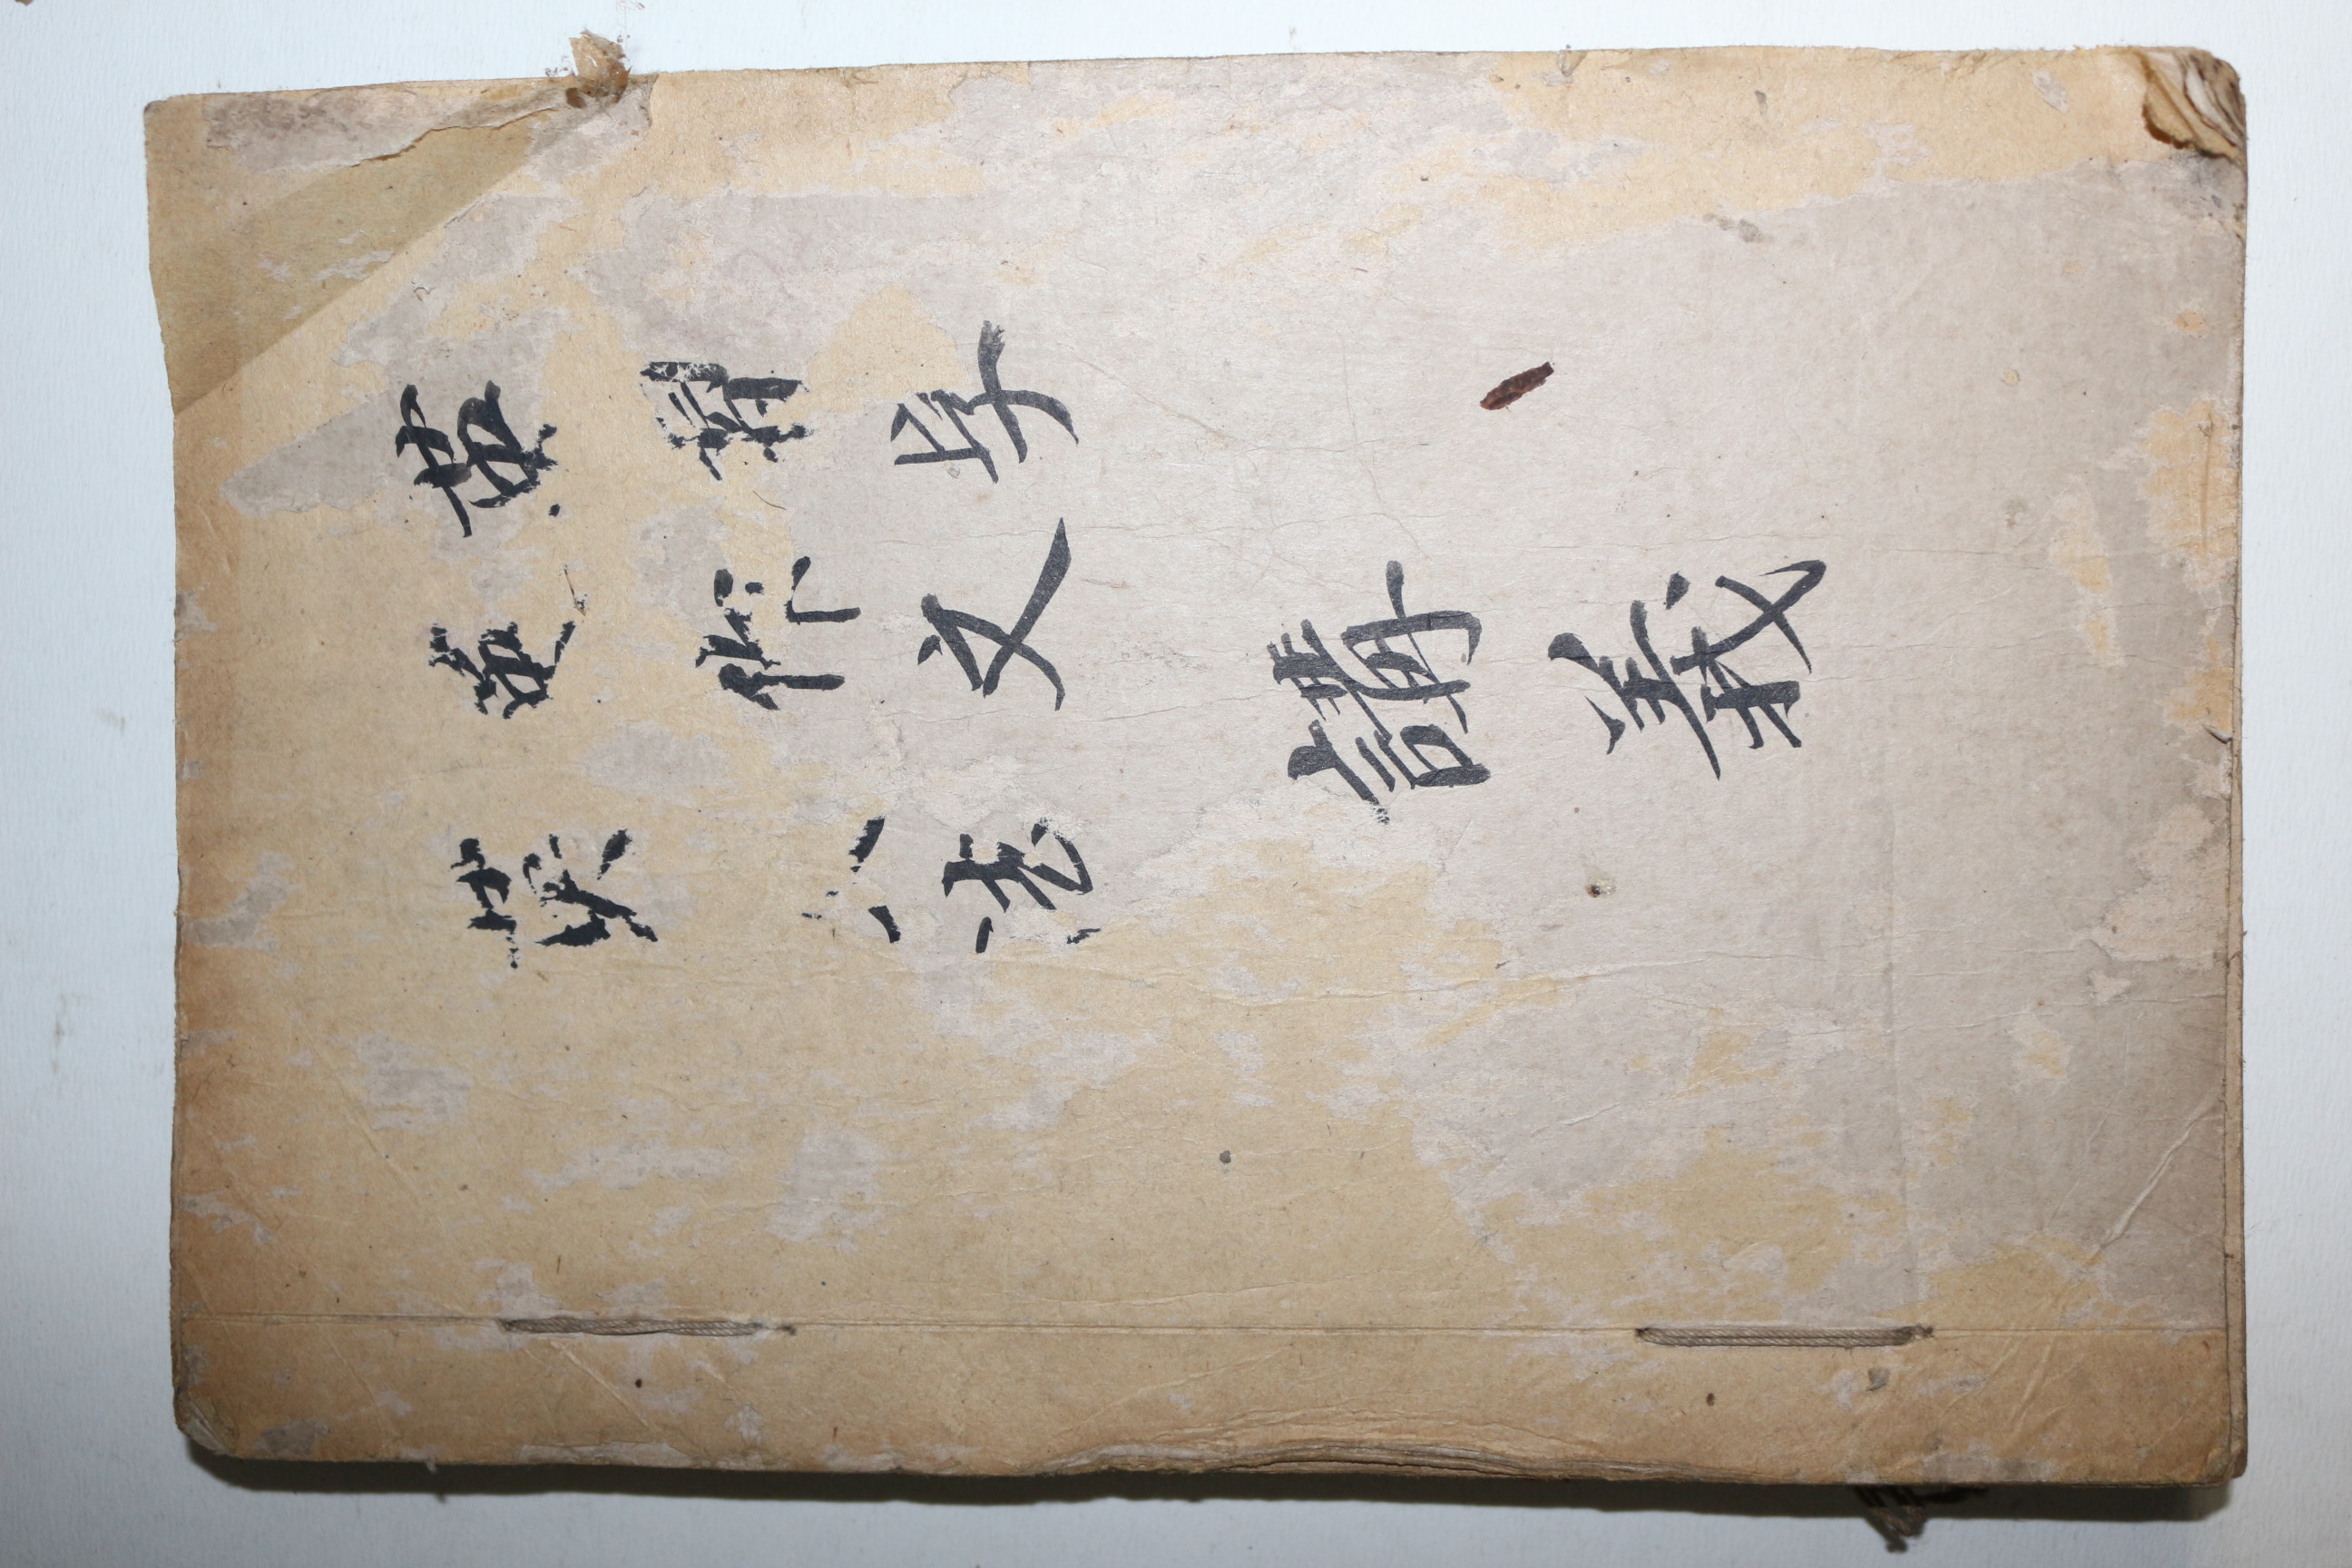 英習字
英作文
英文法
講義